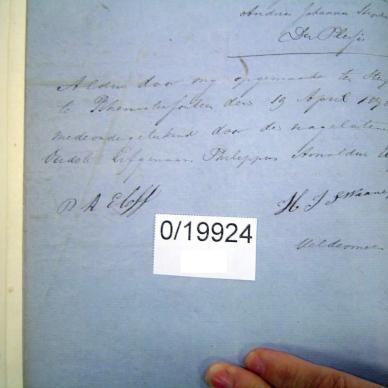 Andries Johannes
Du Plessis
Aldus door my opgemaakt te
te den 19 April
medeondergetekend door de nagelaten
Oudste Erfgenaam Philippus Arnoldus
P A Eloff
H J Swaan
Veldcornet
0/19924